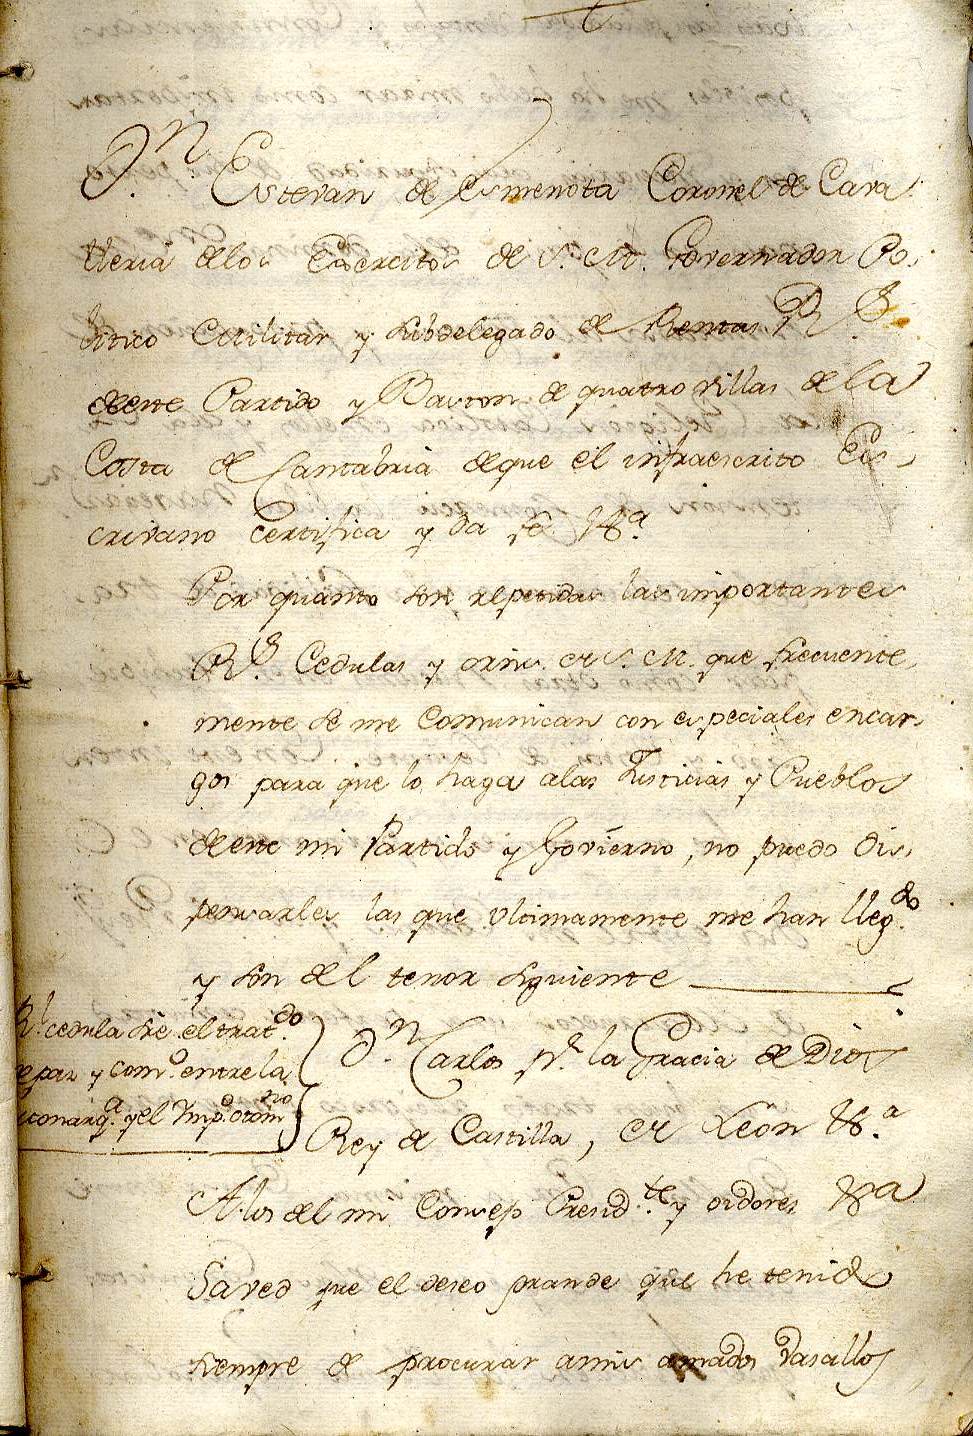 Dn. Estevan de Esmenota Coronel de Cava
lleria delos Exercitos de S. M. Governador Po-
litico Militar y Subdelegado de Rentas Rs.
deste Partido y Baston de quatro villas de la
Costa de Cantabria deque el infraescrito Es-
crivano Certifica y da fe &a.
Por quanto son repetidas las importantes
Rs. Cedulas y orns. de S. M. que frecuente-
mente se me Comunican con especiales encar-
gos para que lo haga alas Justicias y Pueblos
deste mi Partido y Govierno, no puedo dis-
pensarles las que Ultimamente me han lleg.do
y son del tenor siguiente
Rl. cedula sre. el trat.do
de paz y com.o entre la
Monarq.a y el Ymp.o otom.no
Dn. Carlos pr. la Gracia de Dios
Rey de Castilla, de Leon &a.
A los del mi Consejo Presid.te y oidores &a
Saved que el deseo grande que he tenido
siempre de procurar amis amados Vasallos